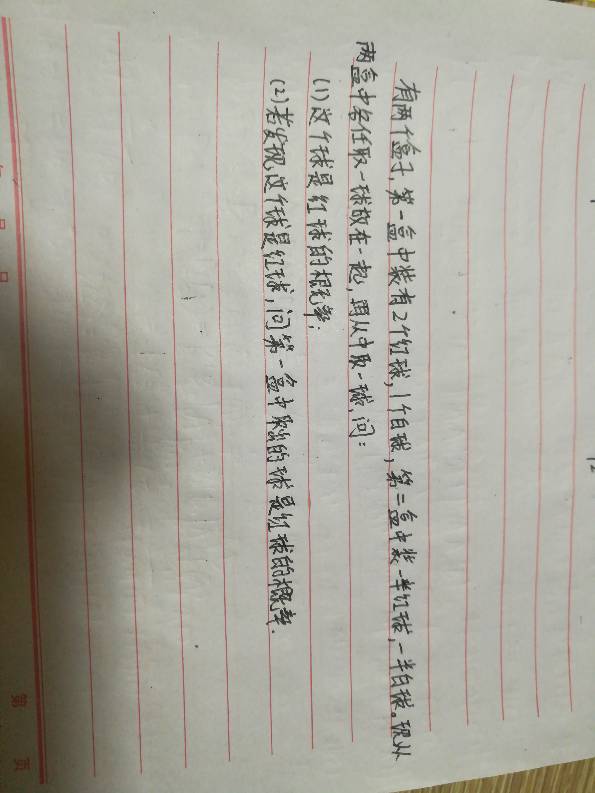 有两个盒子,第一盒中装有2个红球,1个白球,第二盒中装一半红球,一半白球。现从
两盒中各任取一球放在一起,再从中取一球,问:
(1)这个球是红球的概率;
(2)若发现,这个球是红球,问第一盒中取出的球是红球的概率.
第 页